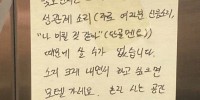 성관계 소리 (주로 여자분 신음소리,
"나 미칠 것 같아" (반복멘트))
때문에 살 수가 없습니다.
소리 크게 내면서 하고 싶으면
모텔 가세요. 혼자 사는 공간